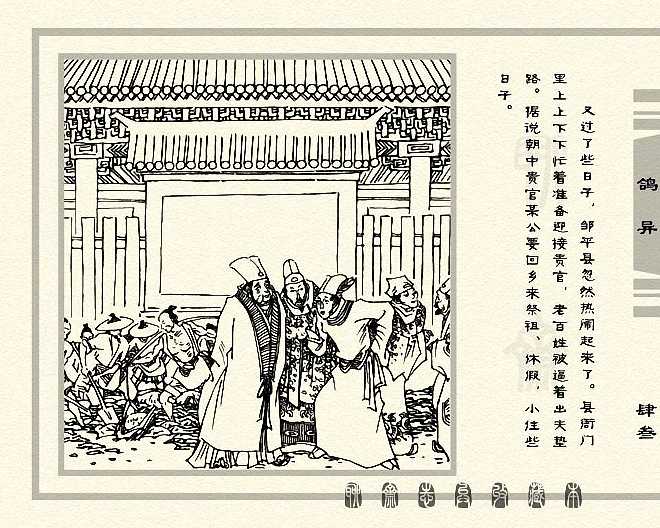 又过了些日子，邹平县忽然热闹起来了。县衙门
里上上下下忙着准备迎接贵官，老百姓被逼着出夫垫
路。据说朝中贵官某公要回乡来祭祖、休假，小住些
日子。
鸽异
肆叁
聊斋志异收藏本